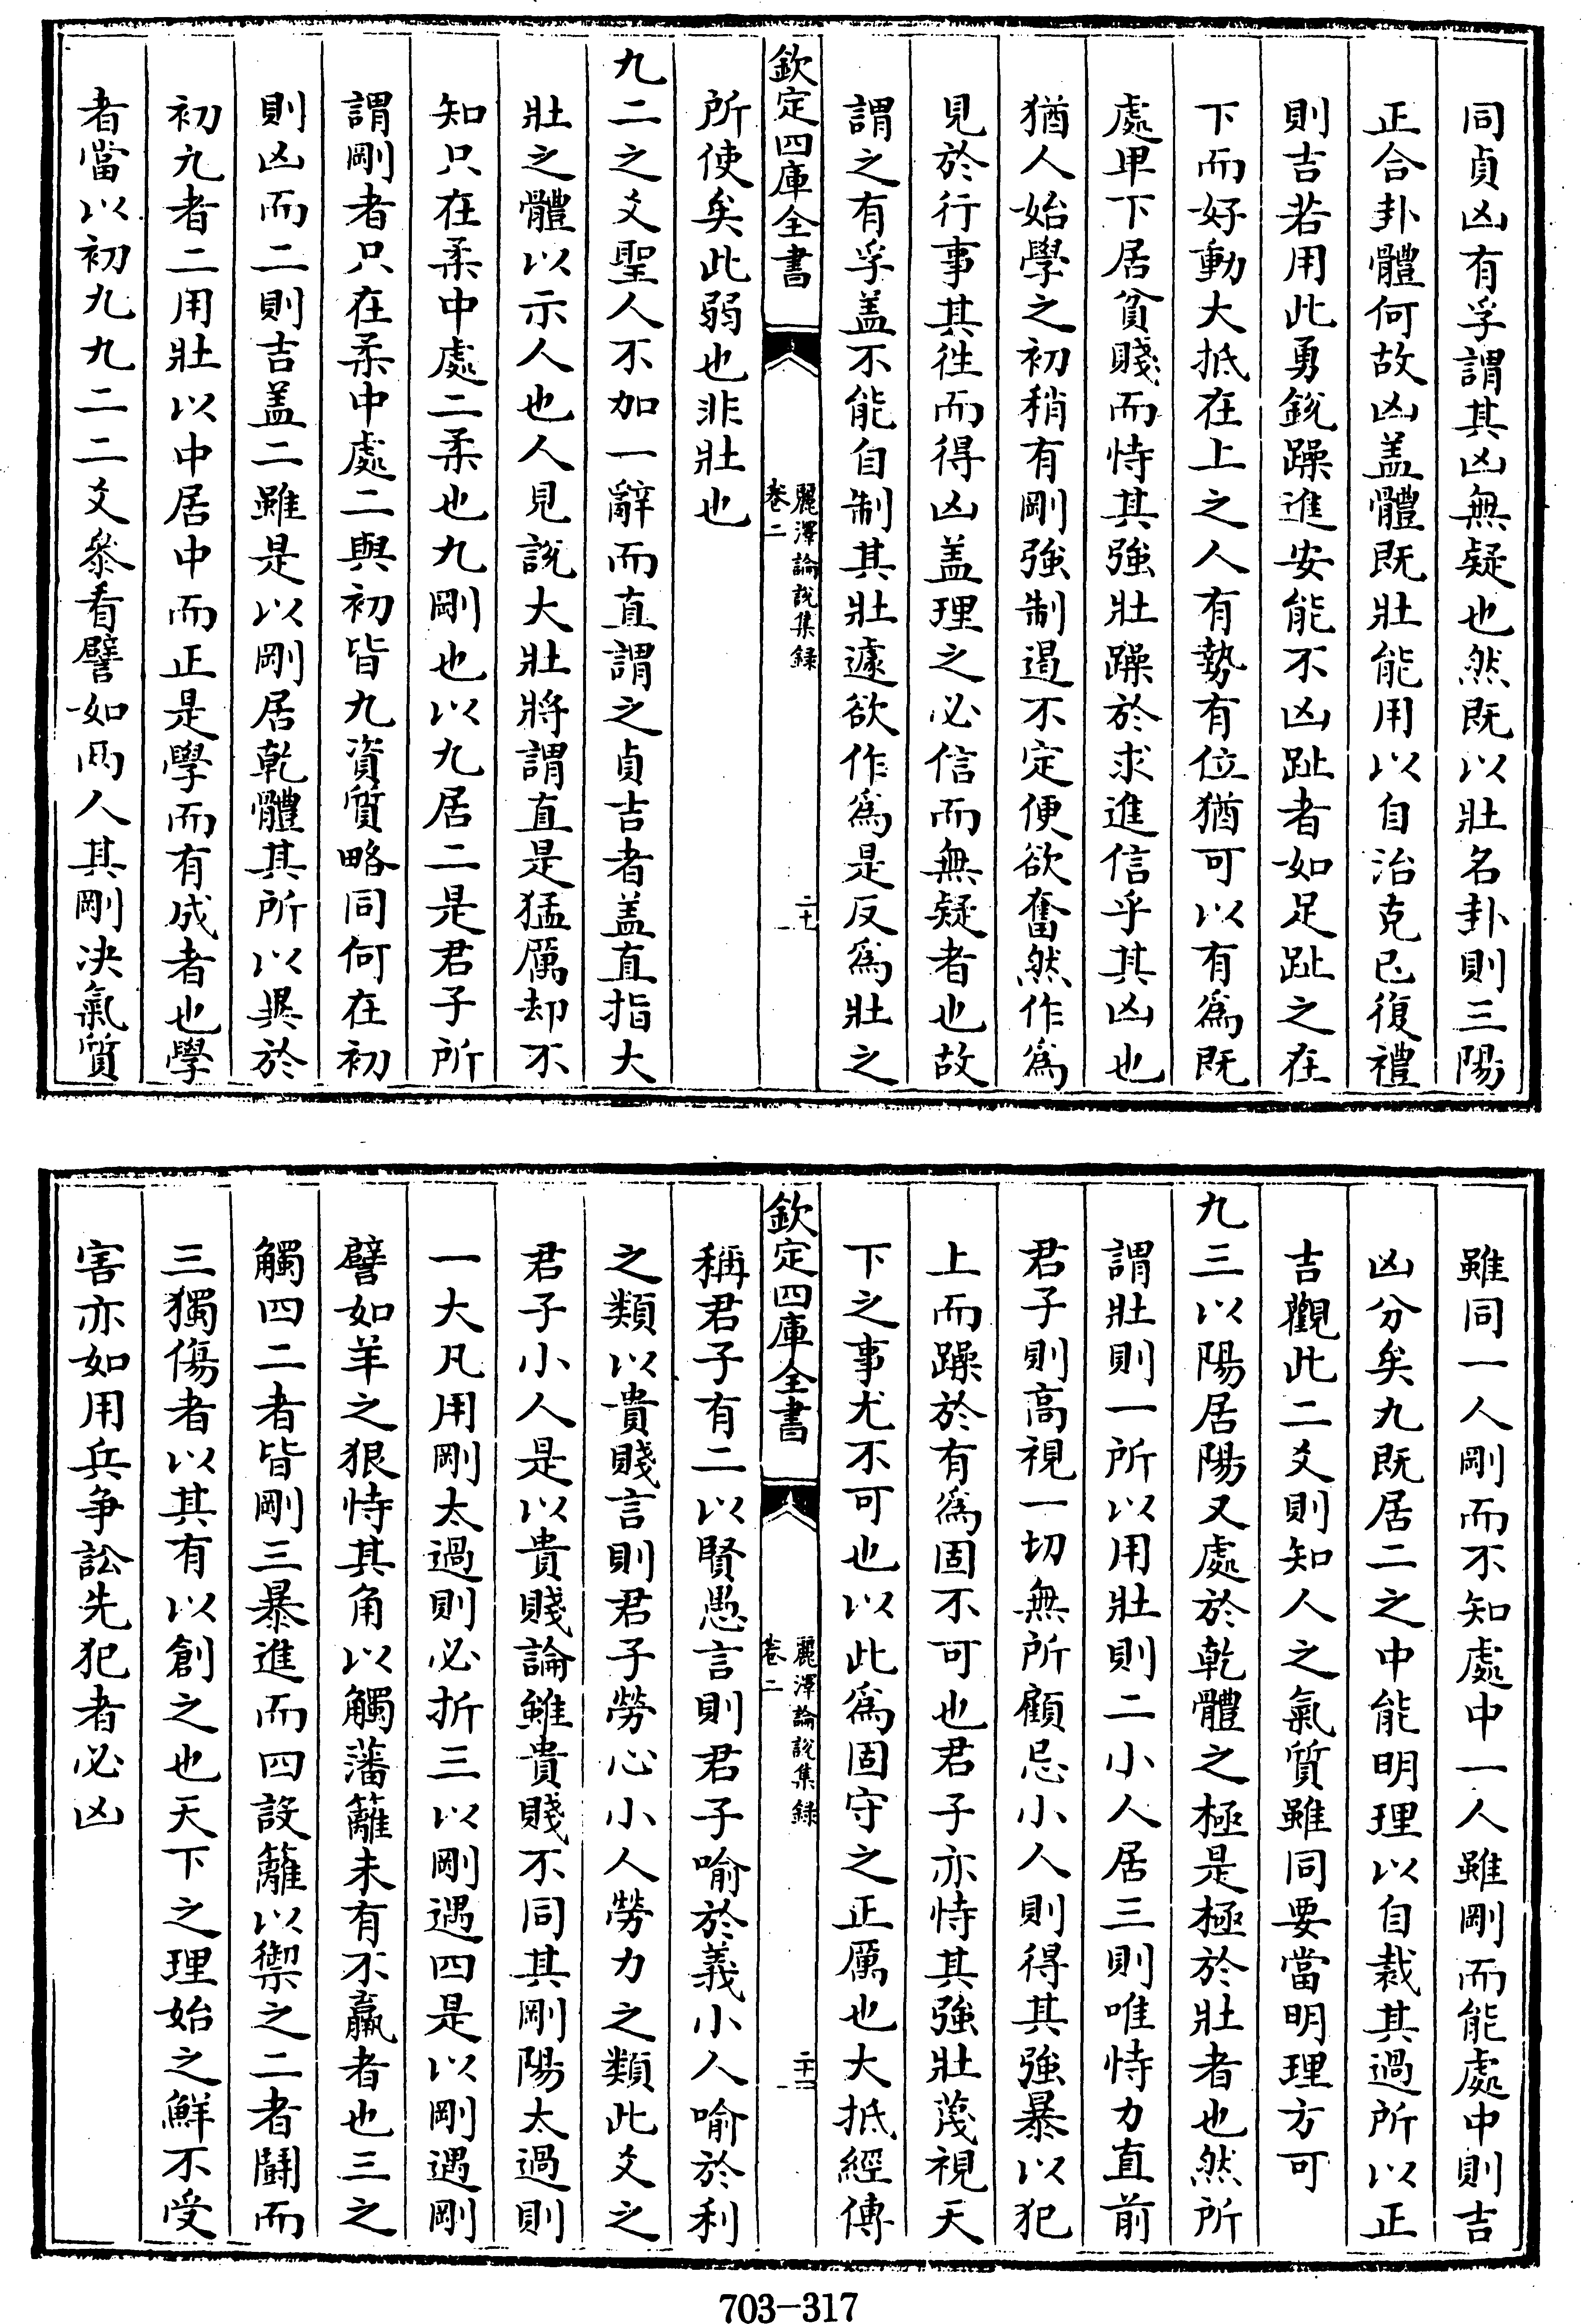 同貞凶有孚謂其凶無疑也然既以壯名卦則三陽
正合卦體何故凶盖體既壯能用以自治克已復禮
則吉若用此勇銳躁進安能不凶趾者如足趾之在
下而好動大抵在上之人有勢有位猶可以有為既
處卑下居貧賤而恃其強壯躁於求進信乎其凶也
猶人始學之初稍有剛強制遏不定便欲奮然作為
見於行事其徃而得凶盖理之必信而無疑者也故
謂之有孚盖不能自制其壯遽欲作為是反為壯之
欽定四庫全書
麗澤論說集録
卷二
二十
所使矣此弱也非壯也
九二之爻聖人不加一辭而直謂之貞吉者盖直指大
壯之體以示人也人見說大壯將謂直是猛厲却不
知只在柔中處二柔也九剛也以九居二是君子所
謂剛者只在柔中處二與初皆九資質略同何在初
則凶而二則吉盖二雖是以剛居乾體其所以異於
初九者二用壯以中居中而正是學而有成者也學
者當以初九九二二爻叅看譬如兩人其剛决氣質
雖同一人剛而不知處中一人雖剛而能處中則吉
凶分矣九既居二之中能明理以自裁其過所以正
吉觀此二爻則知人之氣質雖同要當明理方可
九三以陽居陽又處於乾體之極是極於壯者也然所
謂壯則一所以用壯則二小人居三則唯恃力直前
君子則高視一切無所顧忌小人則得其強暴以犯
上而躁於有為固不可也君子亦恃其強壯蔑視天
下之事尤不可也以此為固守之正厲也大抵經傳
欽定四庫全書
麗澤論說集録
卷二
二十一
稱君子有二以賢愚言則君子喻於義小人喻於利
之類以貴賤言則君子勞心小人勞力之類此爻之
君子小人是以貴賤論雖貴賤不同其剛陽太過則
一大凡用剛太過則必折三以剛遇四是以剛遇剛
譬如羊之狠恃其角以觸藩籬未有不羸者也三之
觸四二者皆剛三暴進而四設籬以禦之二者鬬而
三獨傷者以其有以創之也天下之理始之鮮不受
害亦如用兵爭訟先犯者必凶
703-317